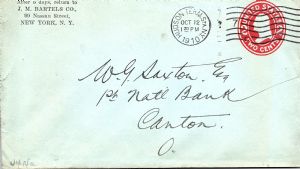 After 6 days, return to
J. M. BARTELS CO.,
99 Nassau Street,
NEW YORK, N. Y.
HUDSON TERM. STA. N.Y.
OCT 12
PM
1910
UNITED STATES
TWO CENTS
W. G. Saxton, Esq
Ph Natl Bank
Canton,
O.